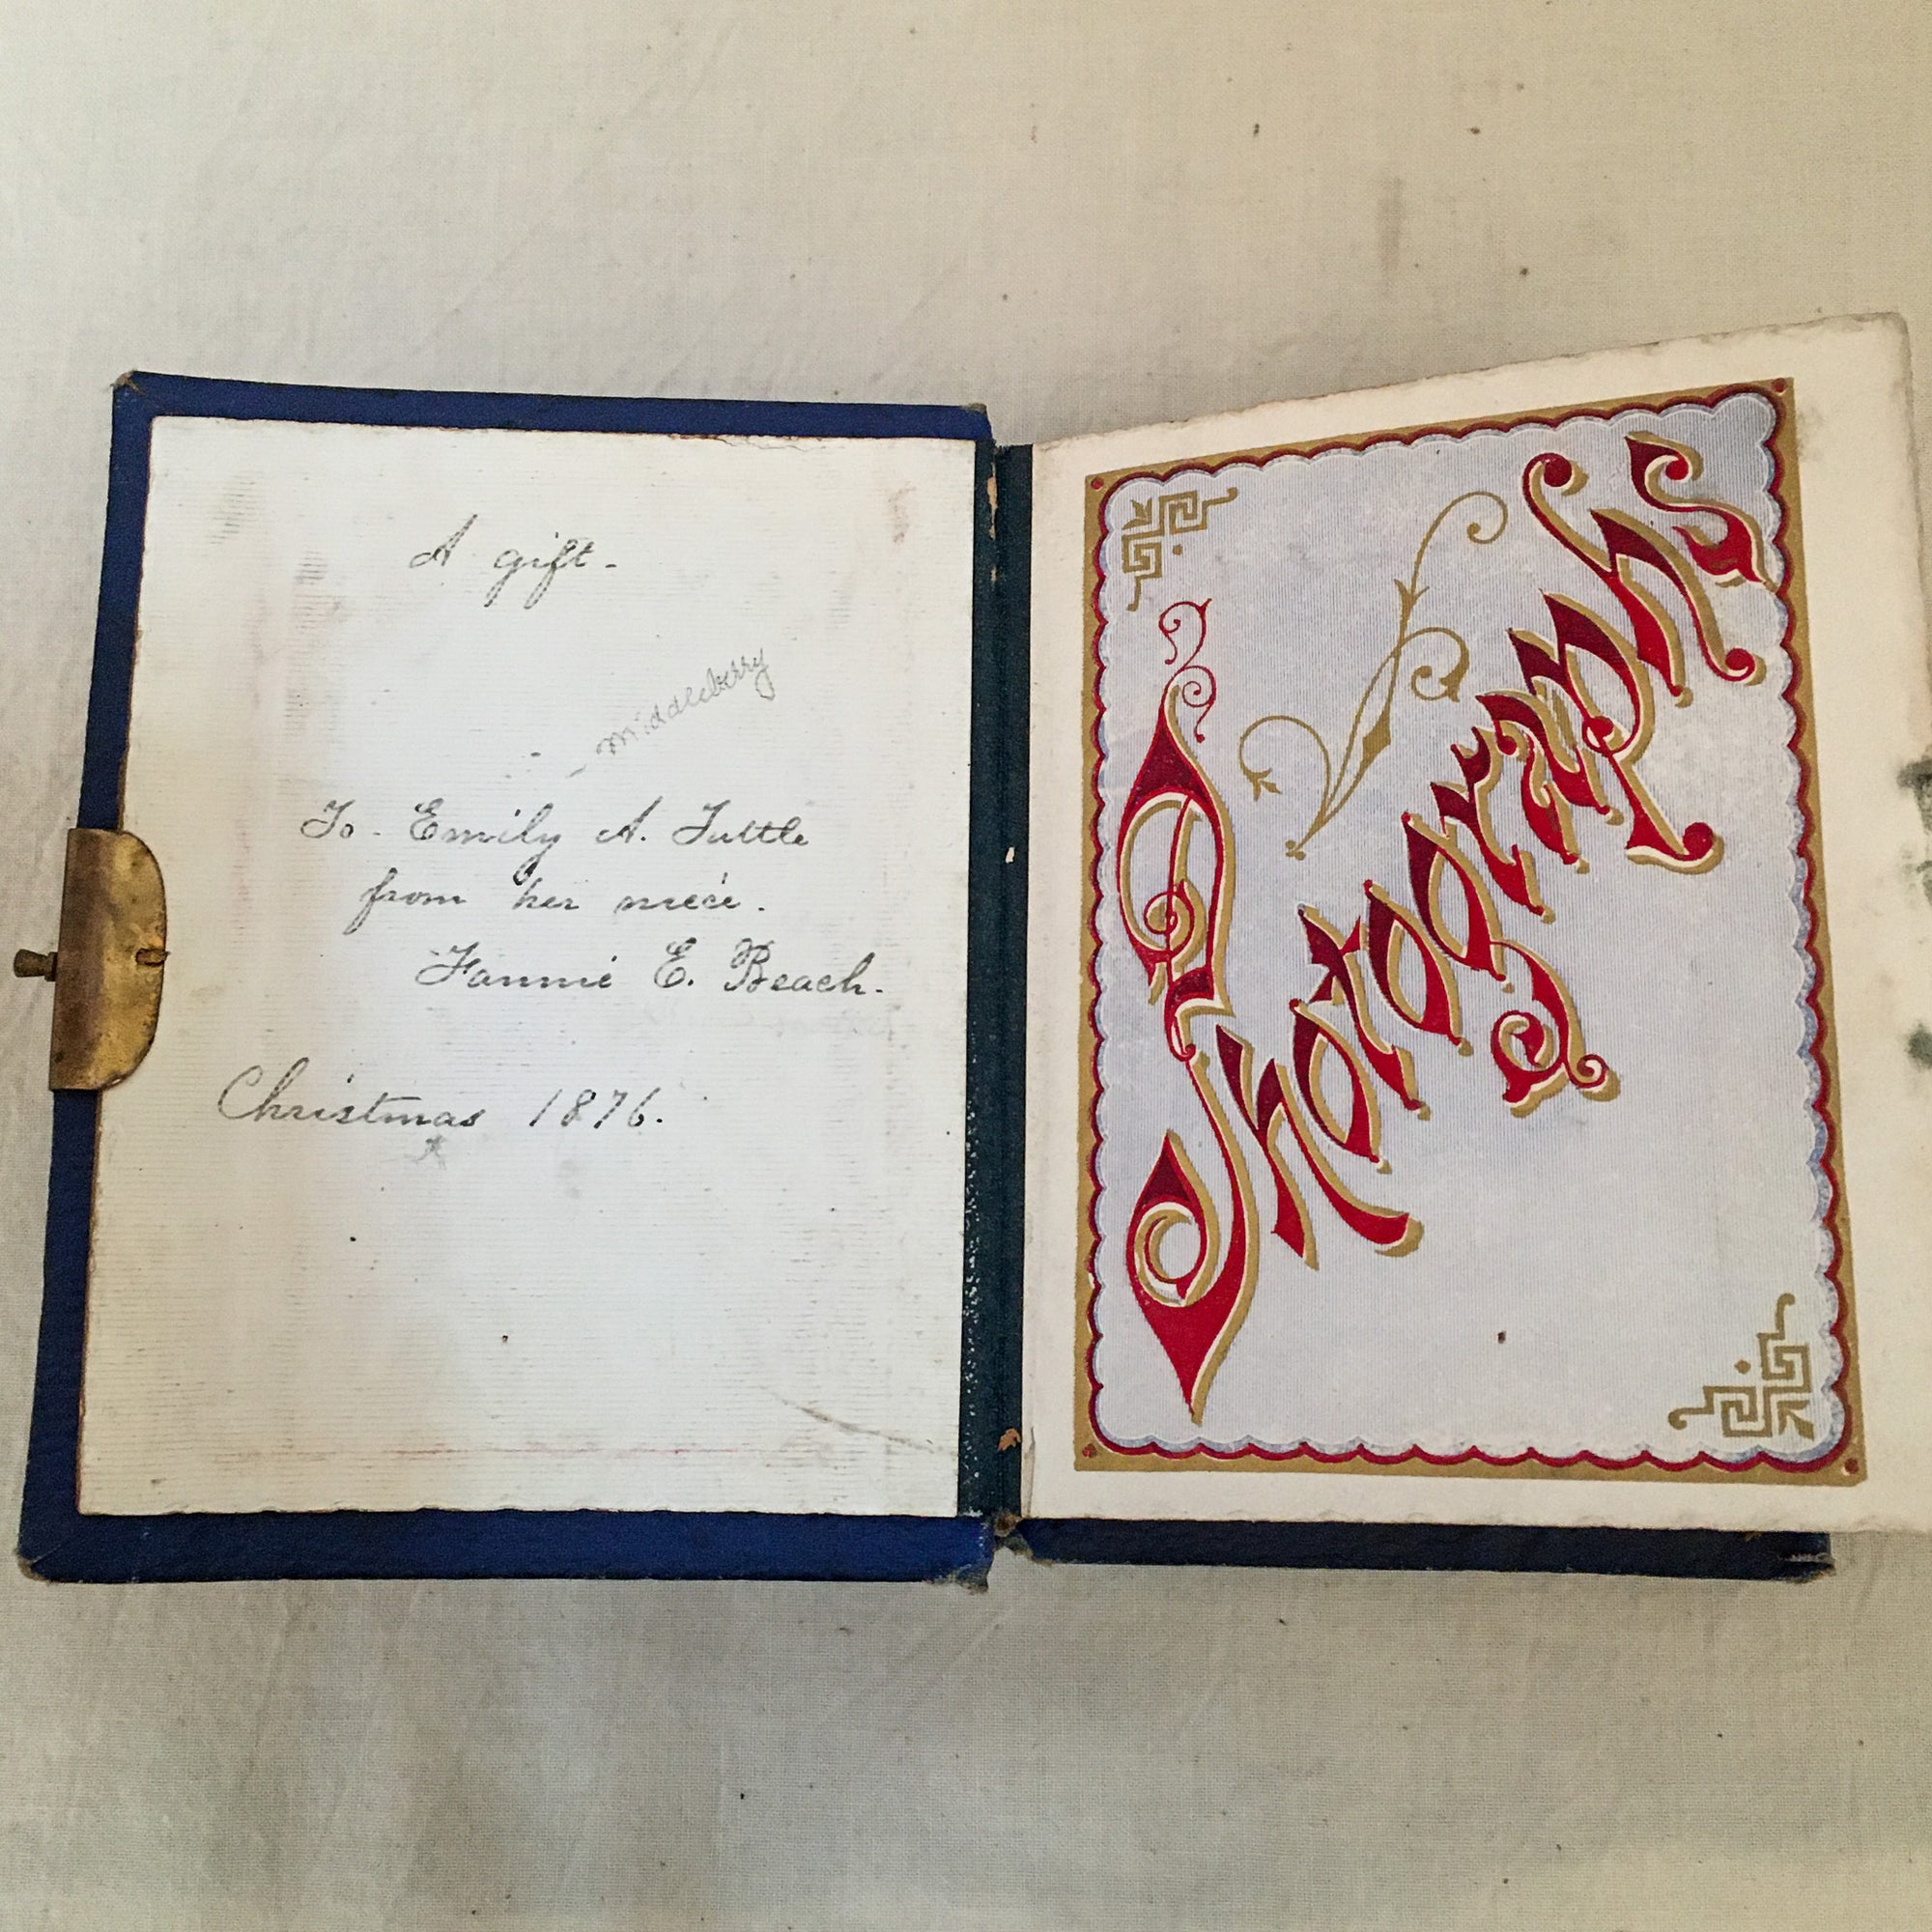 A gift.
Middleberry
To - Emily A. Tuttle
from her niece.
Fannie E. Beach.
Christmas 1876.
Photographs